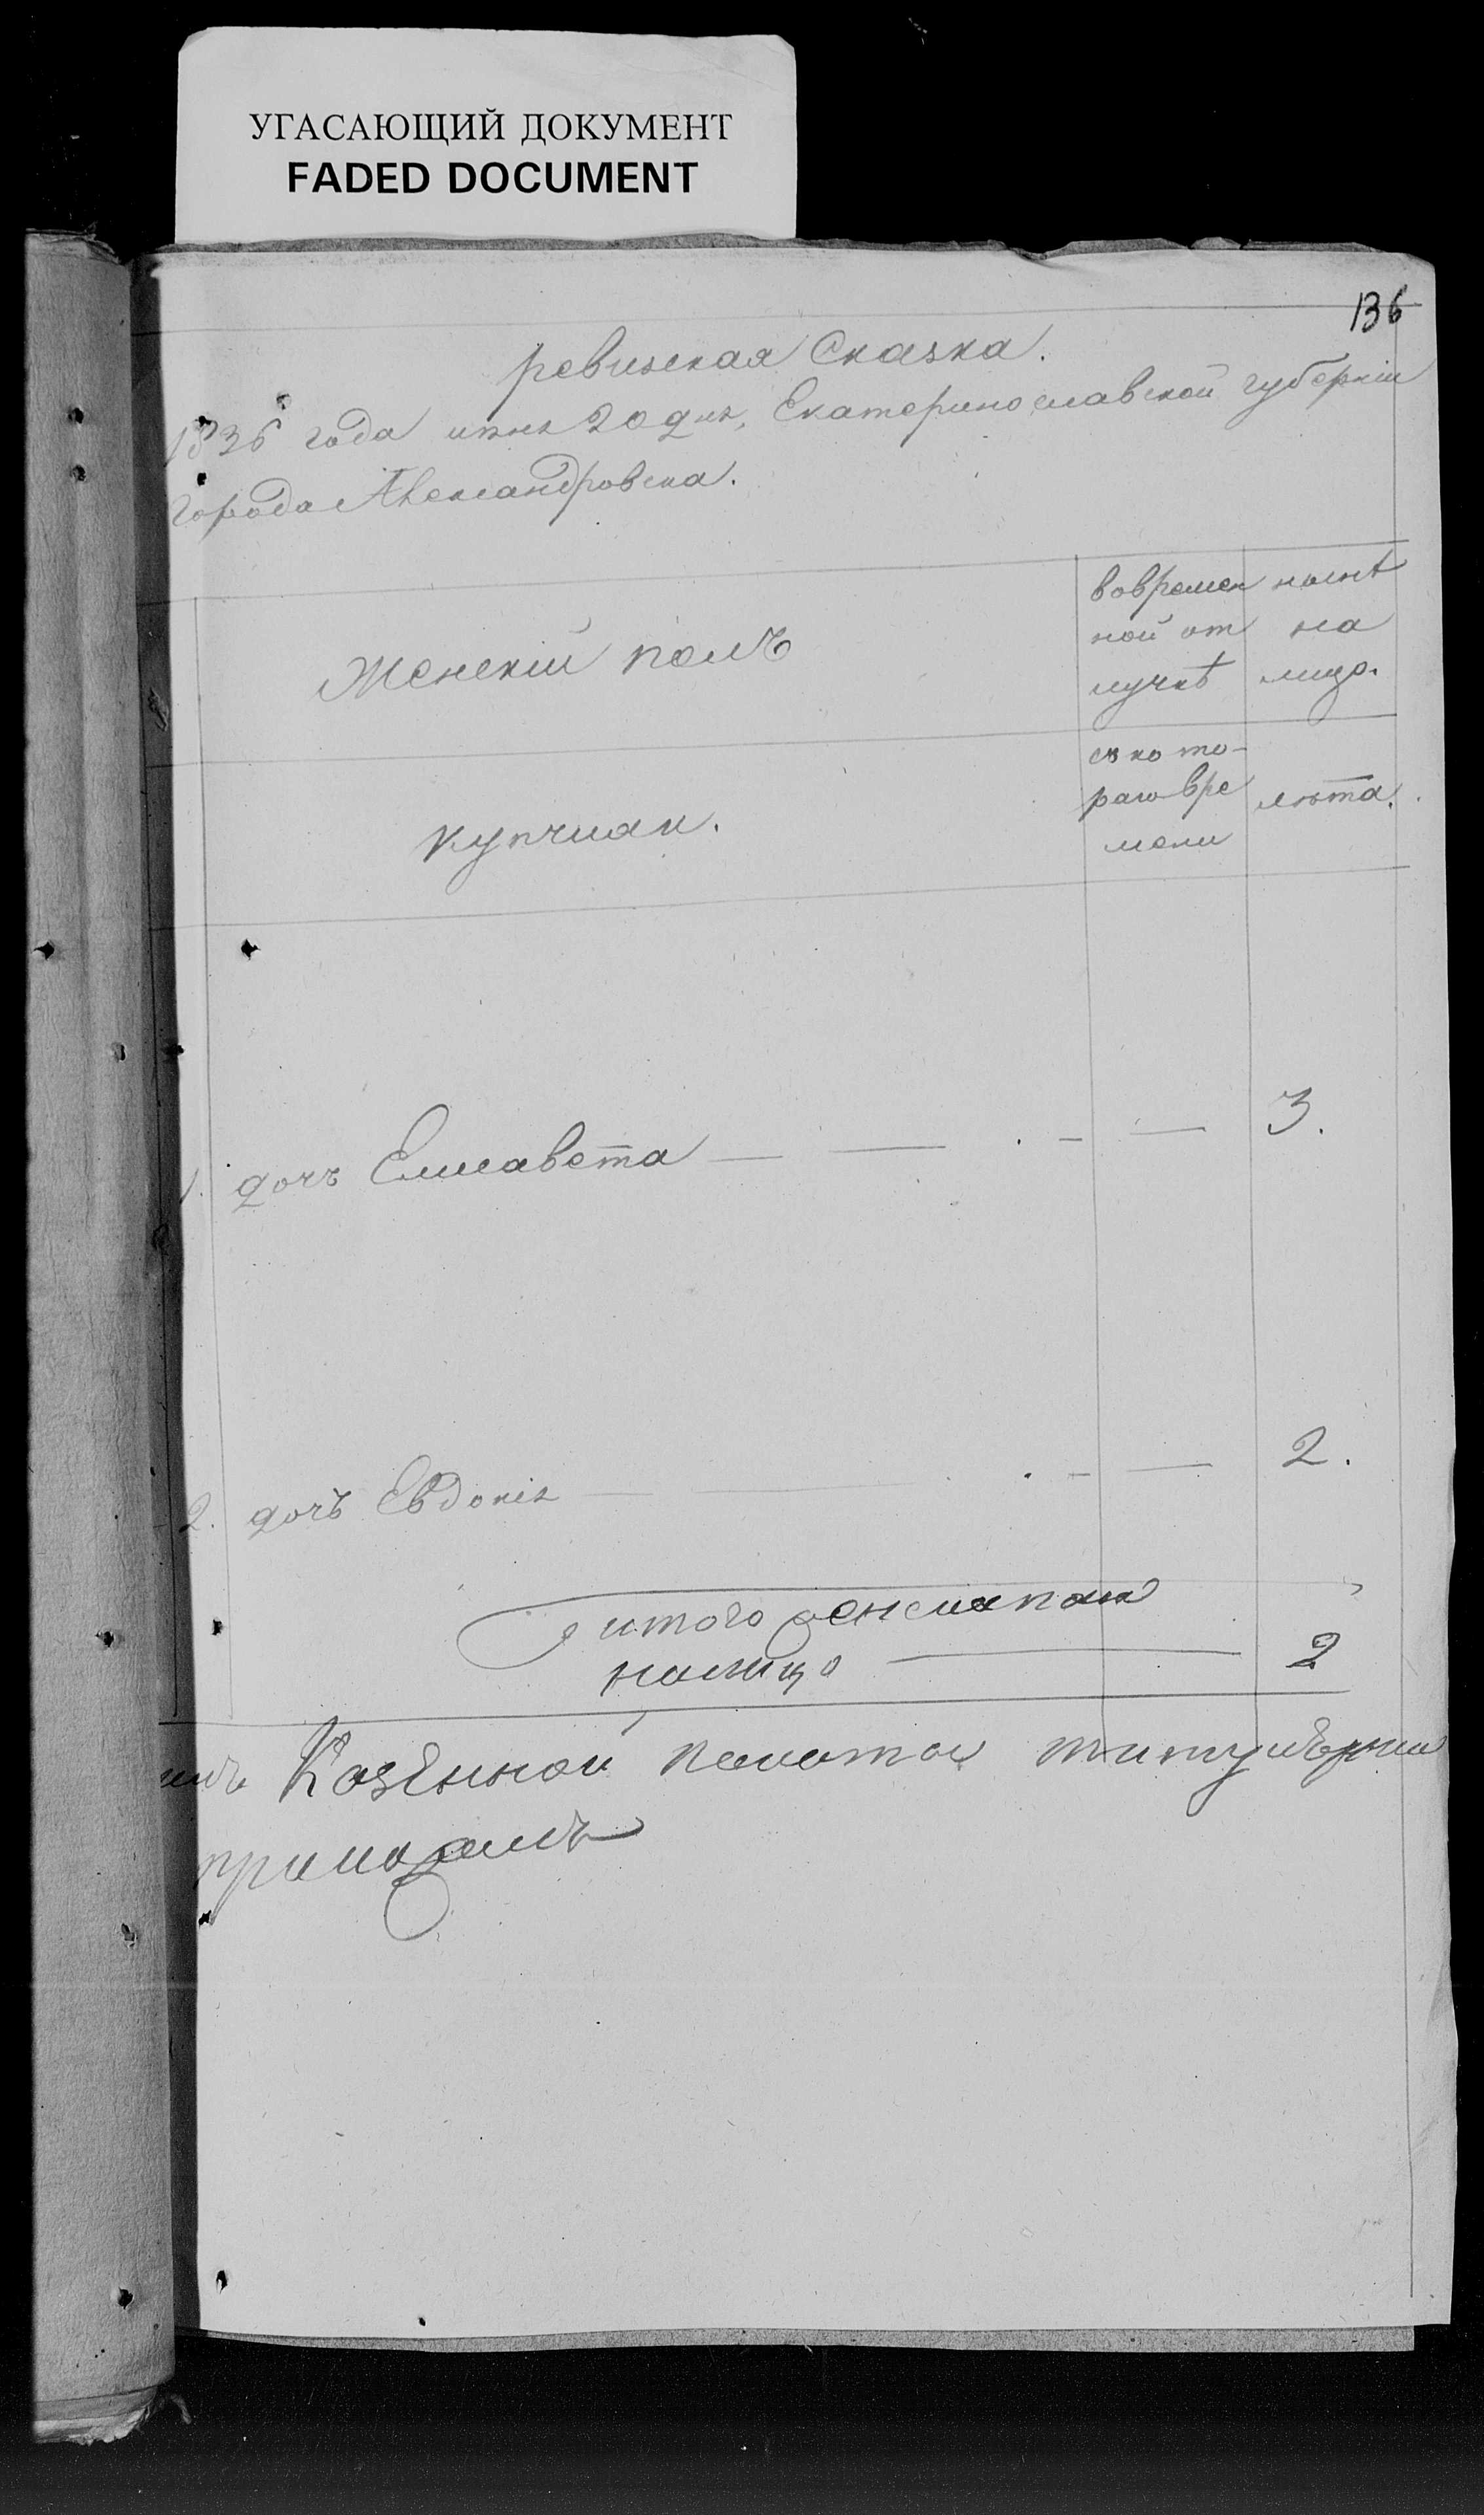 УГАСАЮЩИЙ ДОКУМЕНТ
FADED DOCUMENT
136
ревизская Сказка.
1836 года июня 20 дня, Екатеринославской губернiи
Города Александровска.
Женскiй полъ
вовремен
ной от
лучкѣ
нынѣ
на
лицо.
купчиха.
съ кото-
раго вре
мени
лѣта.
1. дочь Елисавета — — . - — 3.
2. дочь Евдокiя — — . - — 2.
итого женска пола
налицо — 2
Казенной палаты